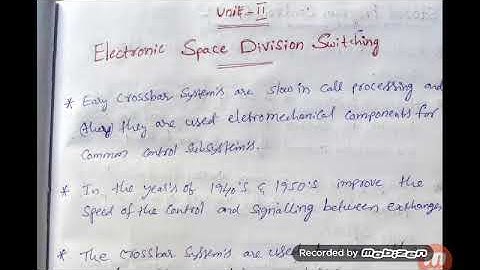 Unit-II
Electronic Space Division Switching
* Eary Crossbar System's are slow in call processing and
they are used eletromechanical components for
Common Control Subsystem's.
* In the year's of 1940's & 1950's improve the
Speed of the Control and signalling between exchanges
* The crossbar System's are use
Recorded by Mobizen